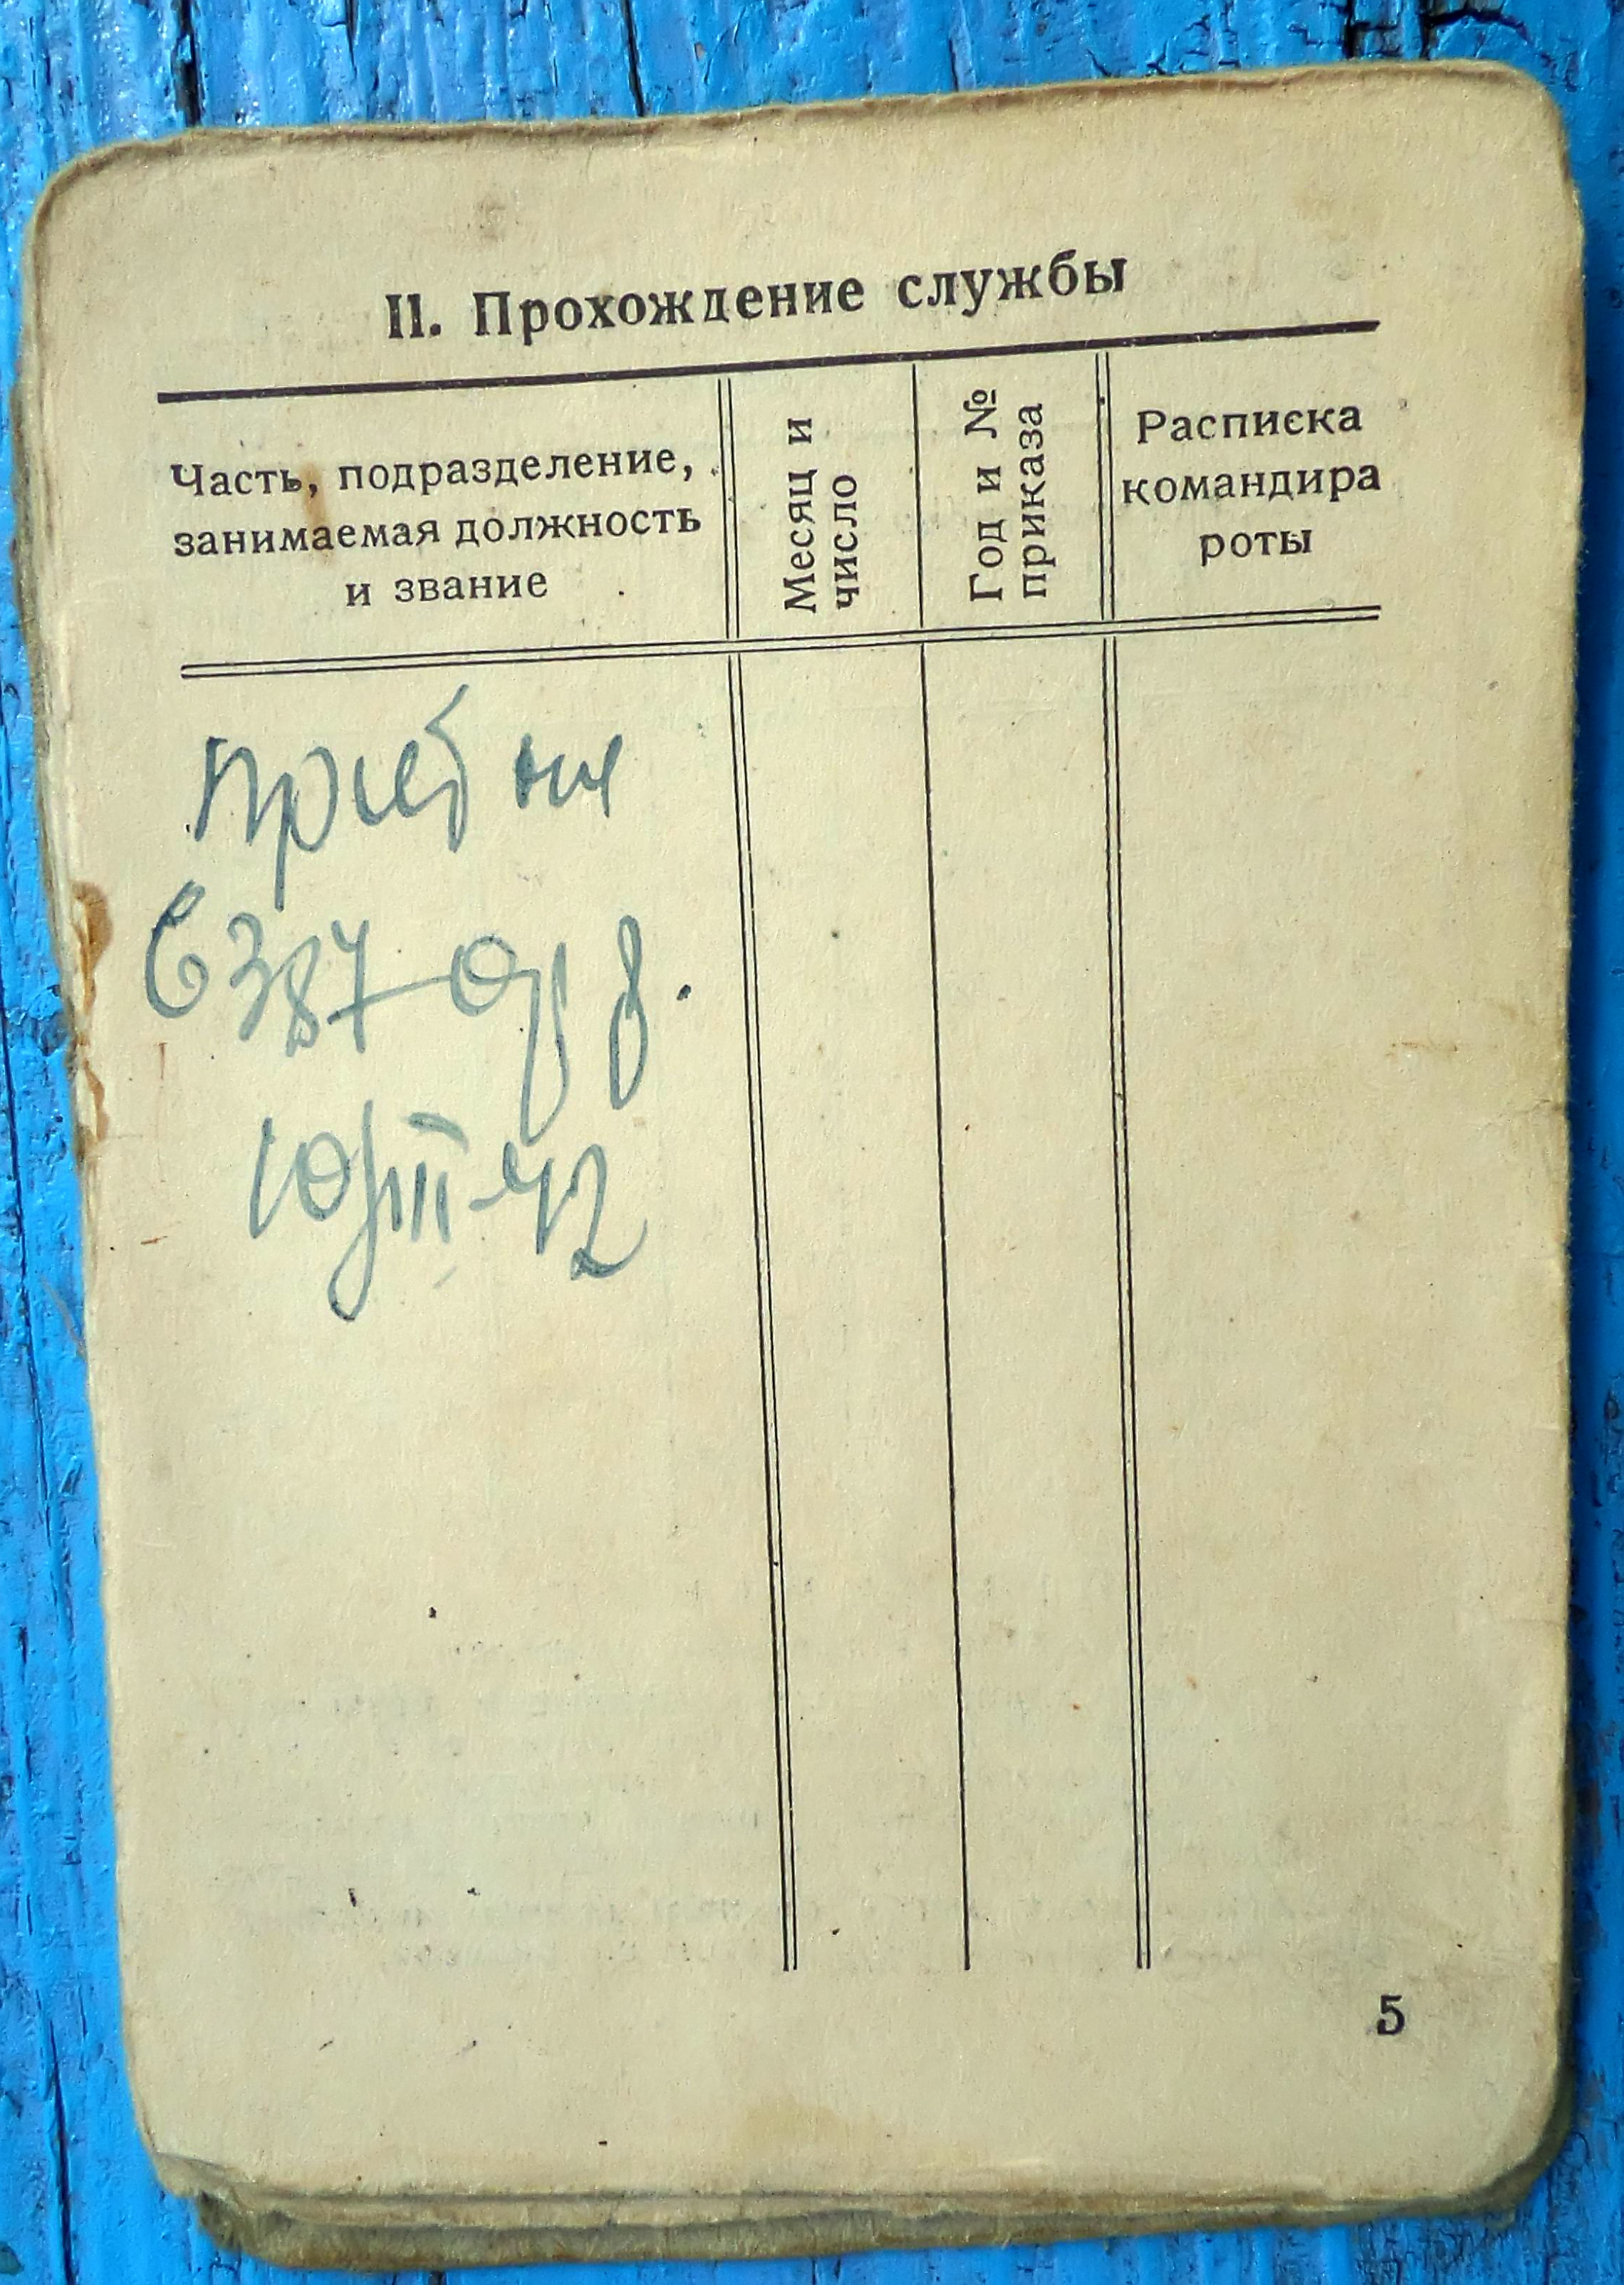 II. Прохождение службы
Часть, подразделение,
занимаемая должность
и звание
Месяц и
число
Год и №
приказа
Расписка
командира
роты
в 387
10/III-42
5